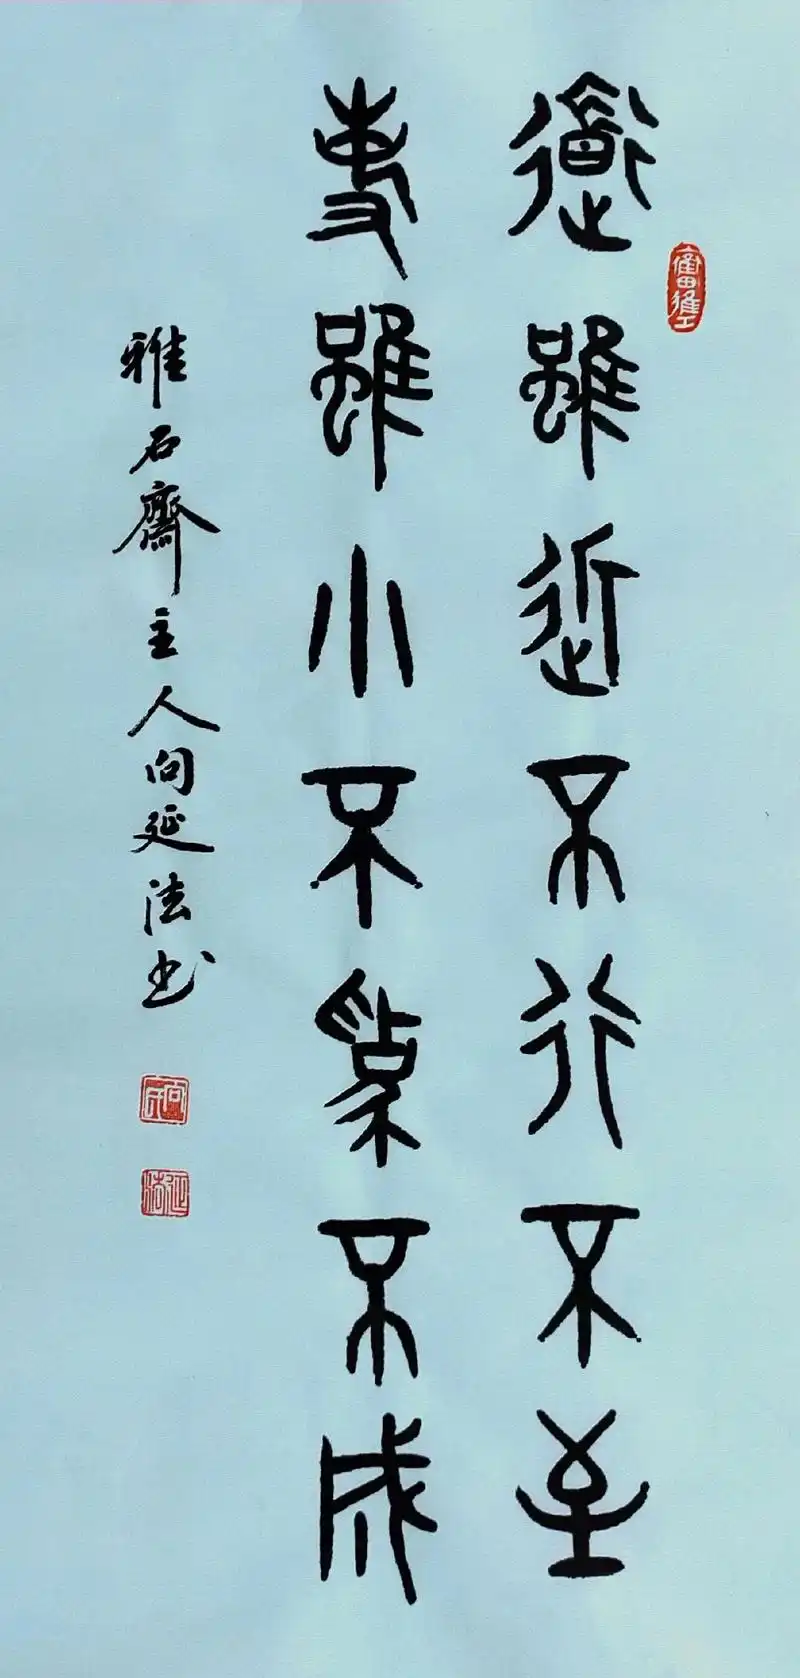 道雖近不行不至
事雖小不為不成
雅石齋主人向延法书
向氏
延法